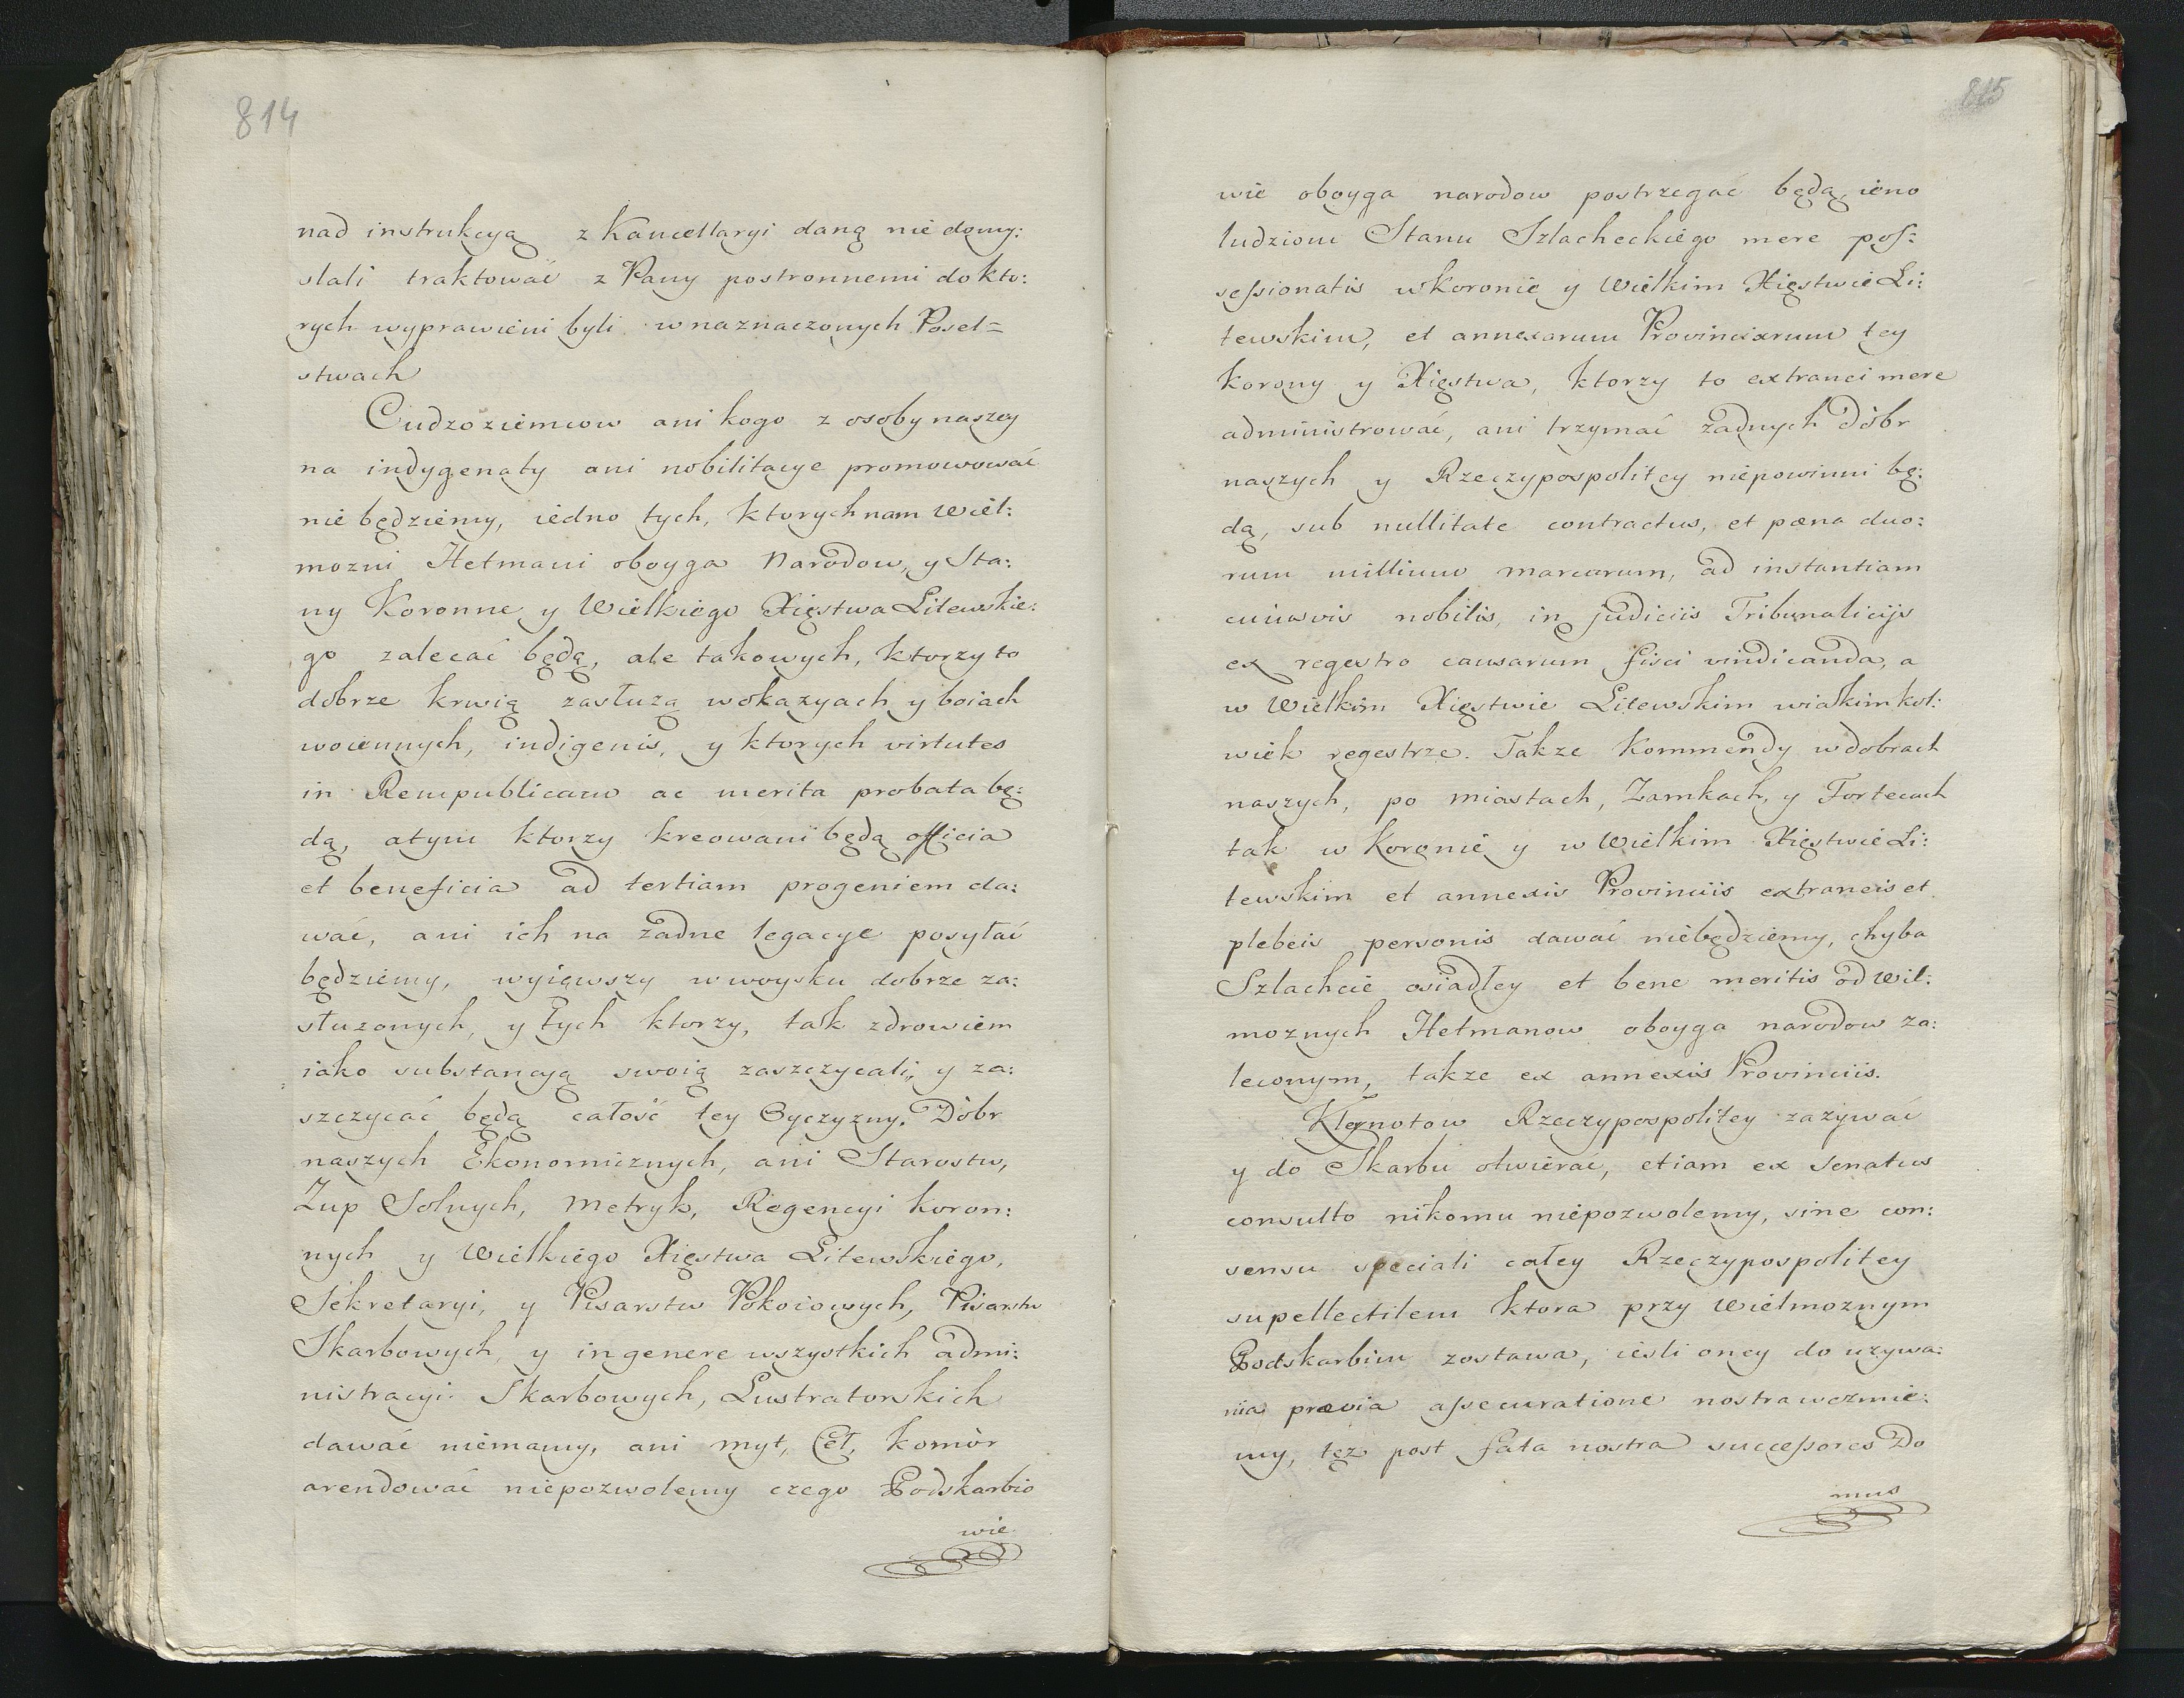 814
nad instrukcyą z Kancellaryi daną nie domy:
slali traktować z Pany postronnemi do kto:
rych wyprawieni byli w naznaczonych Posel=
stwach
Cudzoziemcow ani kogo z osoby naszey
na indygenaty ani nobilitacye promowować
nie będziemy, iedno tych, ktorych nam Wiel:
mozni Hetmani oboyga Narodow, y Sta:
ny Koronne y Wielkiego Xięstwa Litewskie:
go zalecać będą, ale takowych, ktorzy to
dobrze krwią zasłużą w okazyach y boiach
woiennych, indigenis, y ktorych virtutes
in Rempublicam ac merita probata bę:
dą, a tym ktorzy kreowani będą officia
et beneficia ad tertiam progeniem da:
wać, ani ich na żadne legacye posyłać
będziemy, wyiąwszy w woysku dobrze za:
służonych, y tych ktorzy, tak zdrowiem
iako substancyą swoią zaszczycali, y za:
szczycać będą całość tey Oyczyzny. Dòbr
naszych Ekonomicznych, ani Starostw,
Zup Solnych, Metryk, Regencyi koron:
nych y Wielkiego Xięstwa Litewskiego,
Sekretaryi, y Pisarstw Pokoiowych, Pisarstw
Skarbowych, y in genere wszystkich admi:
nistracyi Skarbowych, Lustratorskich
dawać niemamy, ani myt, Ceł, komòr
arendować niepozwolemy czego Podskarbio
wie
815
wie oboyga narodow postrzegać będą, ieno
ludziom Stanu Szlacheckiego mere pos:
sessionatis w Koronie y Wielkim Xięstwie Li:
tewskim, et annexarum Provinciarum tey
Korony y Xięstwa, ktorzy to extranei mere
administrować, ani trzymać żadnych dòbr
naszych y Rzeczypospolitey niepowinni bę:
dą, sub nullitate contractus, et pœna duo:
rum millium marcarum, ad instantiam
cuiusvis nobilis, in judiciis Tribunalicijs
ex regestro causarum fisci vindicanda, a
w Wielkim Xięstwie Litewskim w iakim kol:
wiek regestrze. Takze Kommendy w dobrach
naszych, po miastach, Zamkach, y Fortecach
tak w Koronie y w Wielkim Xięstwie Li:
tewskim et annexis Provinciis extraneis et
plebeis personis dawać niebędziemy, chyba
Szlachcie osiadłey et bene meritis od Wil:
moznych Hetmanow oboyga narodow za:
leconym, takze ex annexis Provinciis.
Kleynotow Rzeczypospolitey zazywać
y do Skarbu otwierać, etiam ex Senatus
consulto nikomu niepozwolemy, sine con:
sensu speciali całey Rzeczypospolitey
supellectilem ktora przy Wielmoznym
Podskarbim zostawa, iesli oney do uzywa:
nia prævia assecuratione nostra wezmie:
my, tęz post fata nostra successores Do
mus